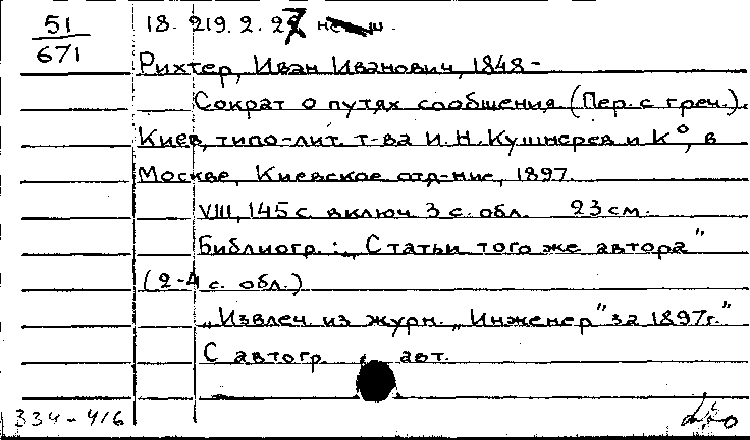 51
671
18. 219. 2. 27
Рихтер, Иван Иванович, 1848-
Сократ о путях сообщения (Пер. с греч.).
Киев, типо-лит. т-ва И. Н. Кушнерев и К°, в
Москве, Киевское отд-ние, 1897.
VIII, 145 с. включ. 3 с. обл. 23 см.
Библиогр.: „Статьи того же автора"
(2-4 с. обл.)
„Извлеч. из журн. „Инженер" за 1897г."
С автогр. авт.
334-416